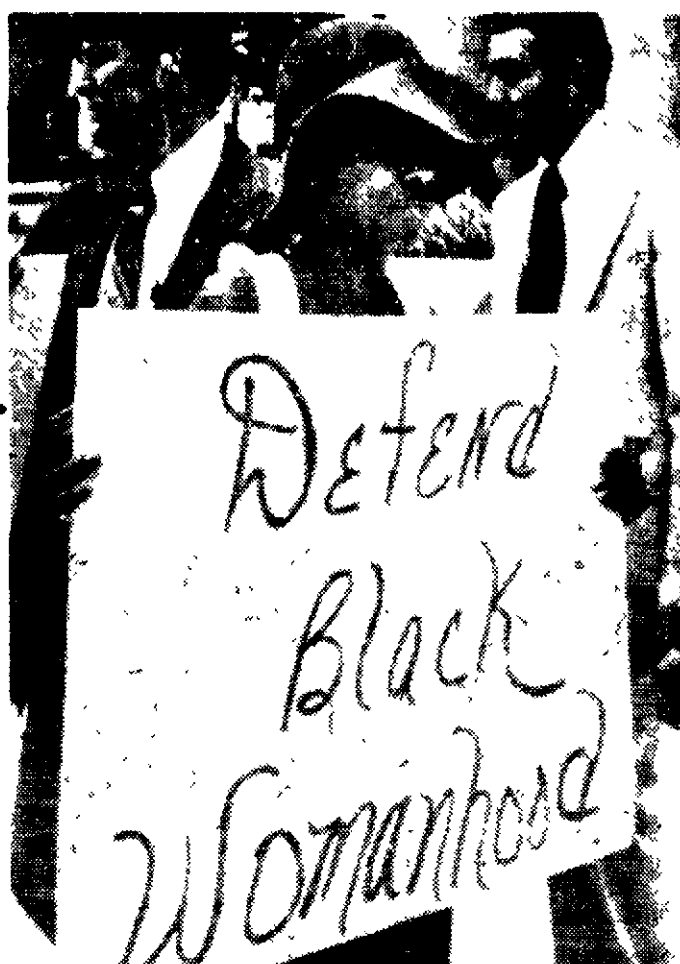 Defend
Black
Womanhood